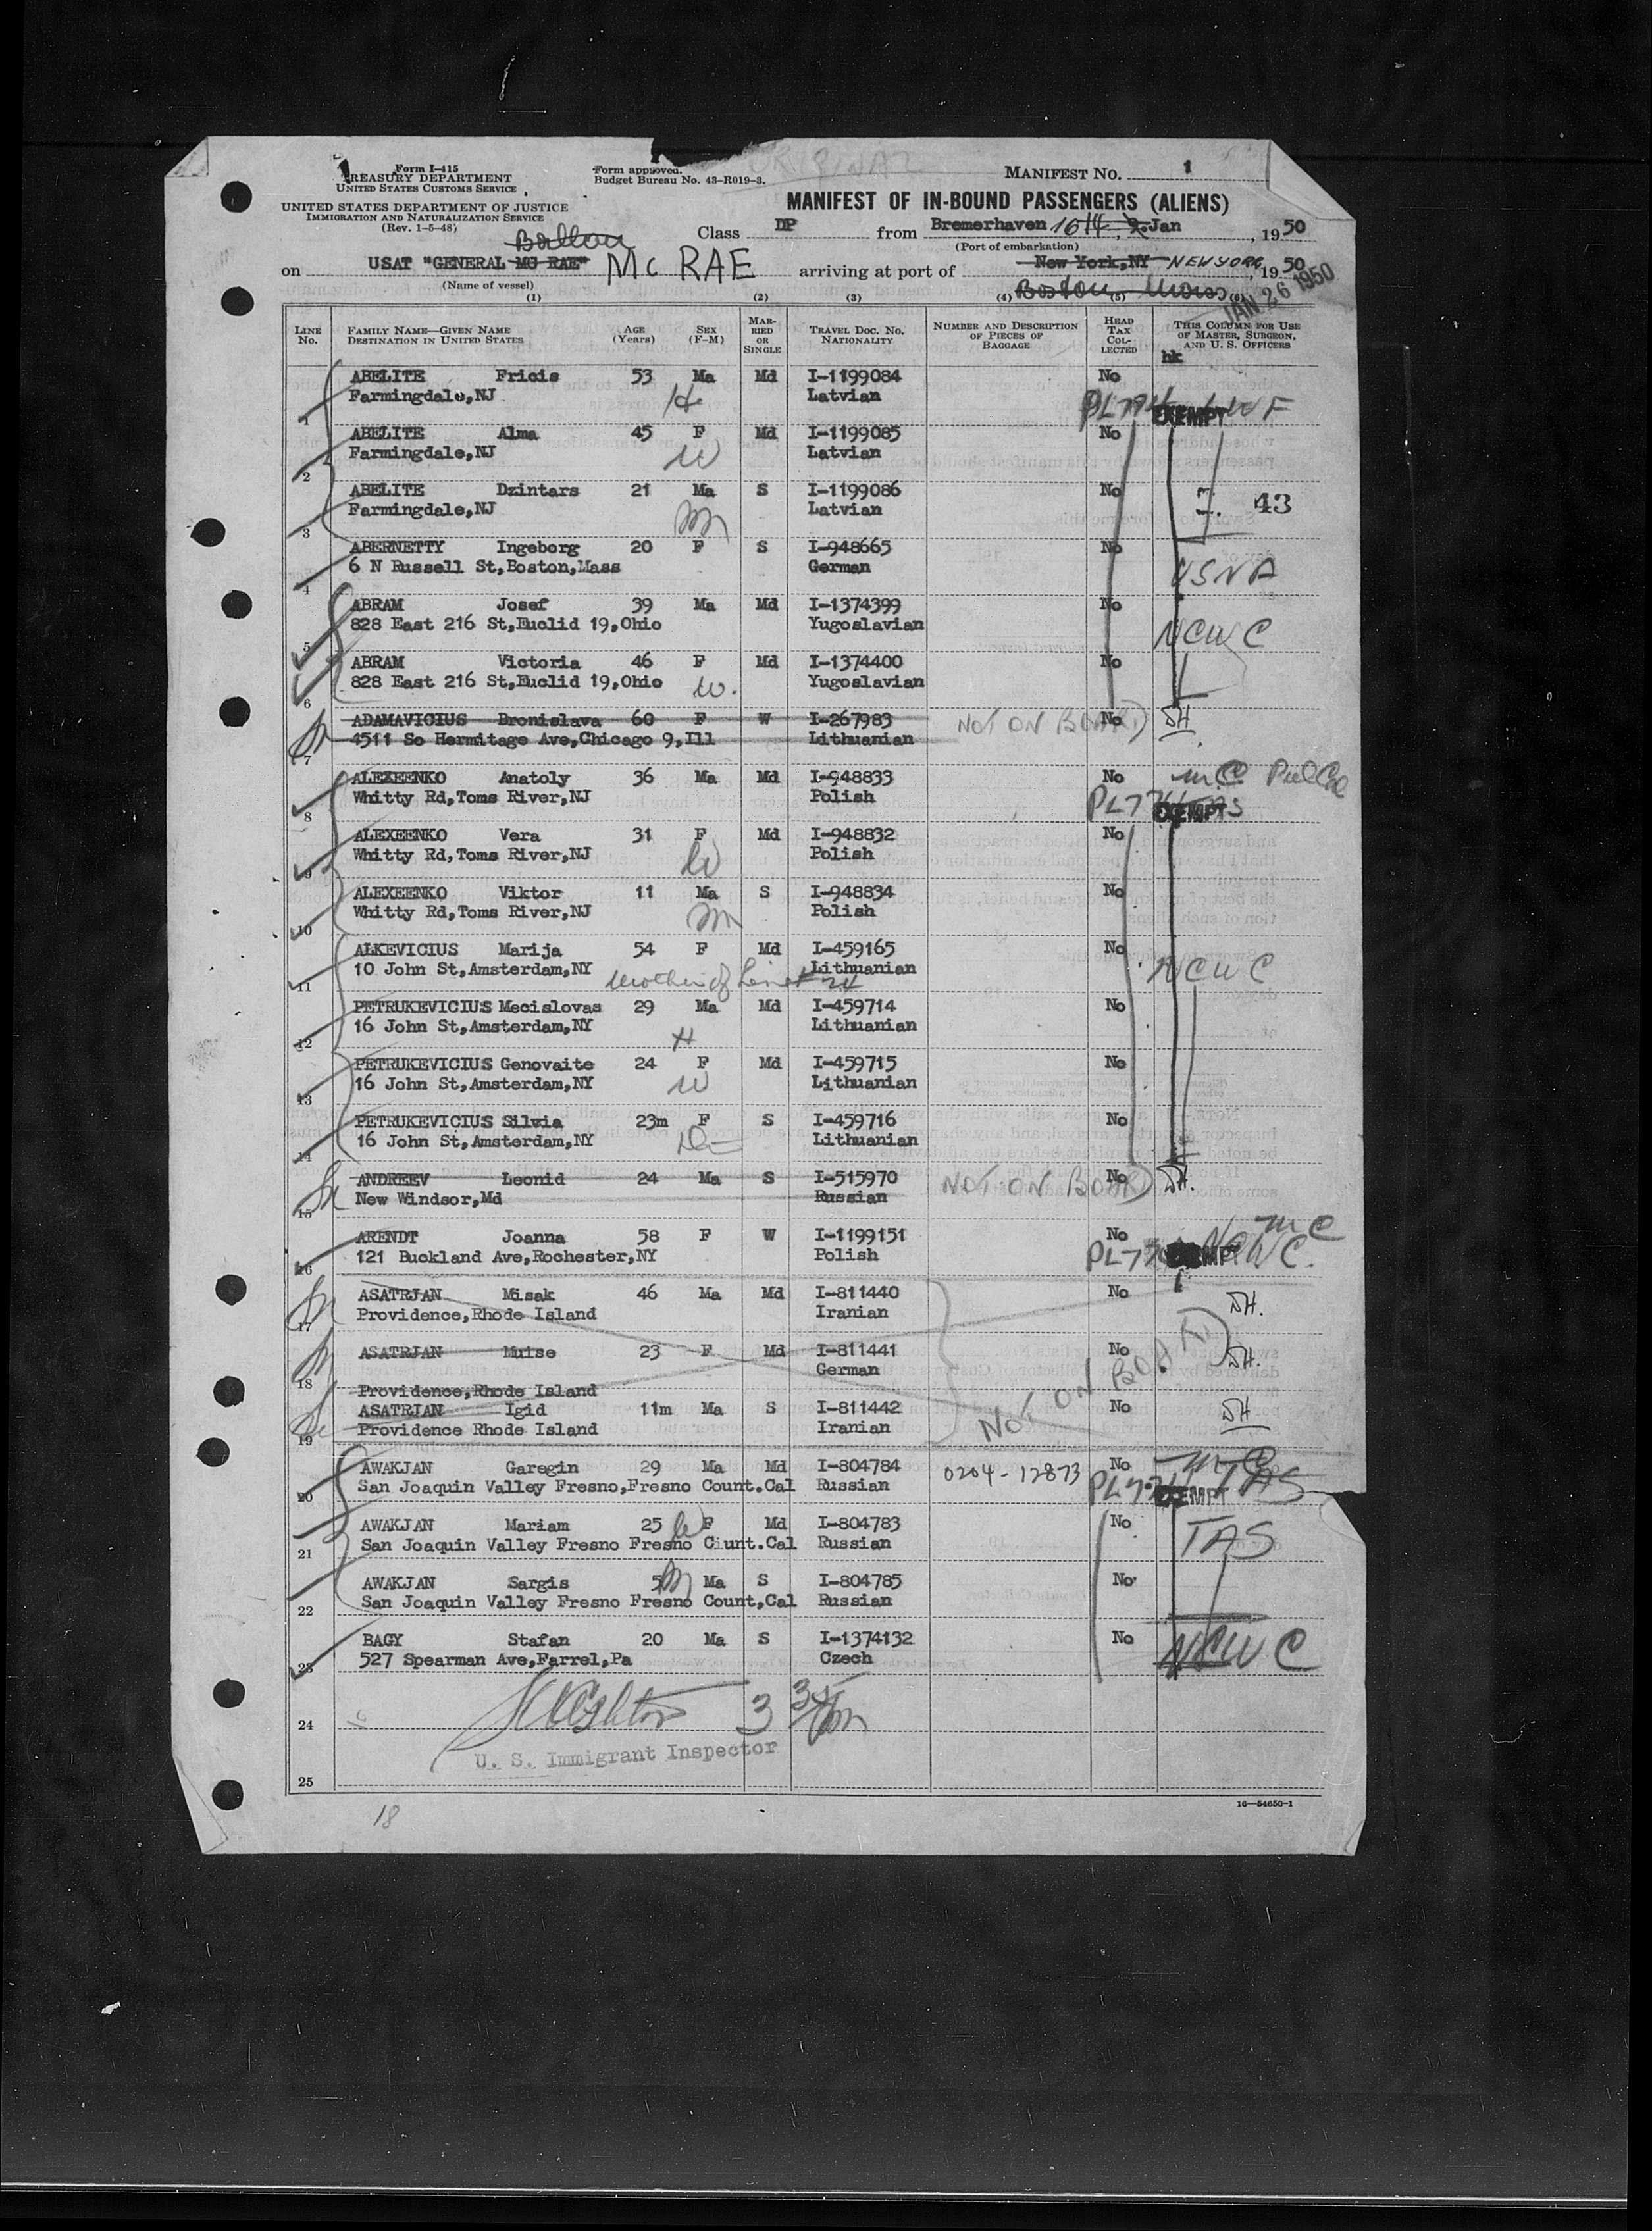 ORIGINAL
Form I-415
TREASURY DEPARTMENT
UNITED STATES CUSTOMS SERVICE
Form approved.
Budget Bureau No. 43-R019-3.
MANIFEST NO. 1
UNITED STATES DEPARTMENT OF JUSTICE
IMMIGRATION AND NATURALIZATION SERVICE
(Rev. 1-5-48)
MANIFEST OF IN-BOUND PASSENGERS (ALIENS)
Class DP from Bremerhaven 16th, 2 Jan, 1950
(Port of embarkation)
Ballou
on USAT "GENERAL MC RAE" Mc RAE arriving at port of New York, NY NEW YORK, 1950
(Name of vessel)
Boston, Mass
JAN 26 1950
(1) (2) (3) (4) (5) (6)
LINE No. FAMILY NAME—GIVEN NAME DESTINATION IN UNITED STATES AGE (Years) SEX (F-M) MARRIED OR SINGLE TRAVEL DOC. NO. NATIONALITY NUMBER AND DESCRIPTION OF PIECES OF BAGGAGE HEAD TAX COLLECTED THIS COLUMN FOR USE OF MASTER, SURGEON, AND U. S. OFFICERS
hk
ABELITE Fricis 53 Ma Md I-1199084 No
1 Farmingdale,NJ H Latvian PL774 EXEMPT LWF
ABELITE Alma 45 F Md I-1199085 No
2 Farmingdale,NJ W Latvian
ABELITE Dzintars 21 Ma S I-1199086 No 43
3 Farmingdale,NJ Latvian
ABERNETTY Ingeborg 20 F S I-948665 No
4 6 N Russell St,Boston,Mass German USNA
ABRAM Josef 39 Ma Md I-1374399 No
5 828 East 216 St,Euclid 19,Ohio Yugoslavian NCWC
ABRAM Victoria 46 F Md I-1374400 No
6 828 East 216 St,Euclid 19,Ohio W. Yugoslavian
ADAMAVICIUS Bronislava 60 F W I-267983 NOT ON BOARD No
7 4511 So Hermitage Ave,Chicago 9,Ill Lithuanian
ALEXEENKO Anatoly 36 Ma Md I-948833 No
8 Whitty Rd,Toms River,NJ Polish PL774 EXEMPT
ALEXEENKO Vera 31 F Md I-948832 No
9 Whitty Rd,Toms River,NJ W Polish
ALEXEENKO Viktor 11 Ma S I-948834 No
10 Whitty Rd,Toms River,NJ Polish
ALKEVICIUS Marija 54 F Md I-459165 No
11 10 John St,Amsterdam,NY mother of Line # 24 Lithuanian NCWC
PETRUKEVICIUS Mecislovas 29 Ma Md I-459714 No
12 16 John St,Amsterdam,NY H Lithuanian
PETRUKEVICIUS Genovaite 24 F Md I-459715 No
13 16 John St,Amsterdam,NY W Lithuanian
PETRUKEVICIUS Silvia 23m F S I-459716 No
14 16 John St,Amsterdam,NY Lithuanian
ANDREEV Leonid 24 Ma S I-515970 NOT ON BOARD No
15 New Windsor,Md Russian
ARENDT Joanna 58 F W I-1199151 No
16 121 Buckland Ave,Rochester,NY Polish PL774 EXEMPT NCWC.
ASATRJAN Misak 46 Ma Md I-811440 No
17 Providence,Rhode Island Iranian
ASATRJAN Muise 23 F Md I-811441 No
18 German
Providence,Rhode Island NOT ON BOARD
ASATRJAN Igid 11m Ma S I-811442 No
19 Providence Rhode Island Iranian
AWAKJAN Garegin 29 Ma Md I-804784 0204-12873 No
20 San Joaquin Valley Fresno,Fresno Count.Cal Russian PL774 EXEMPT TAS
AWAKJAN Mariam 25 W F Md I-804783 No
21 San Joaquin Valley Fresno Fresno Ciunt.Cal Russian TAS
AWAKJAN Sargis 5 Ma S I-804785 No
22 San Joaquin Valley Fresno Fresno Count,Cal Russian
BAGY Stafan 20 Ma S I-1374132 No
23 527 Spearman Ave,Farrel,Pa Czech NCWC
24
U. S. Immigrant Inspector
25
16—54650-1
18